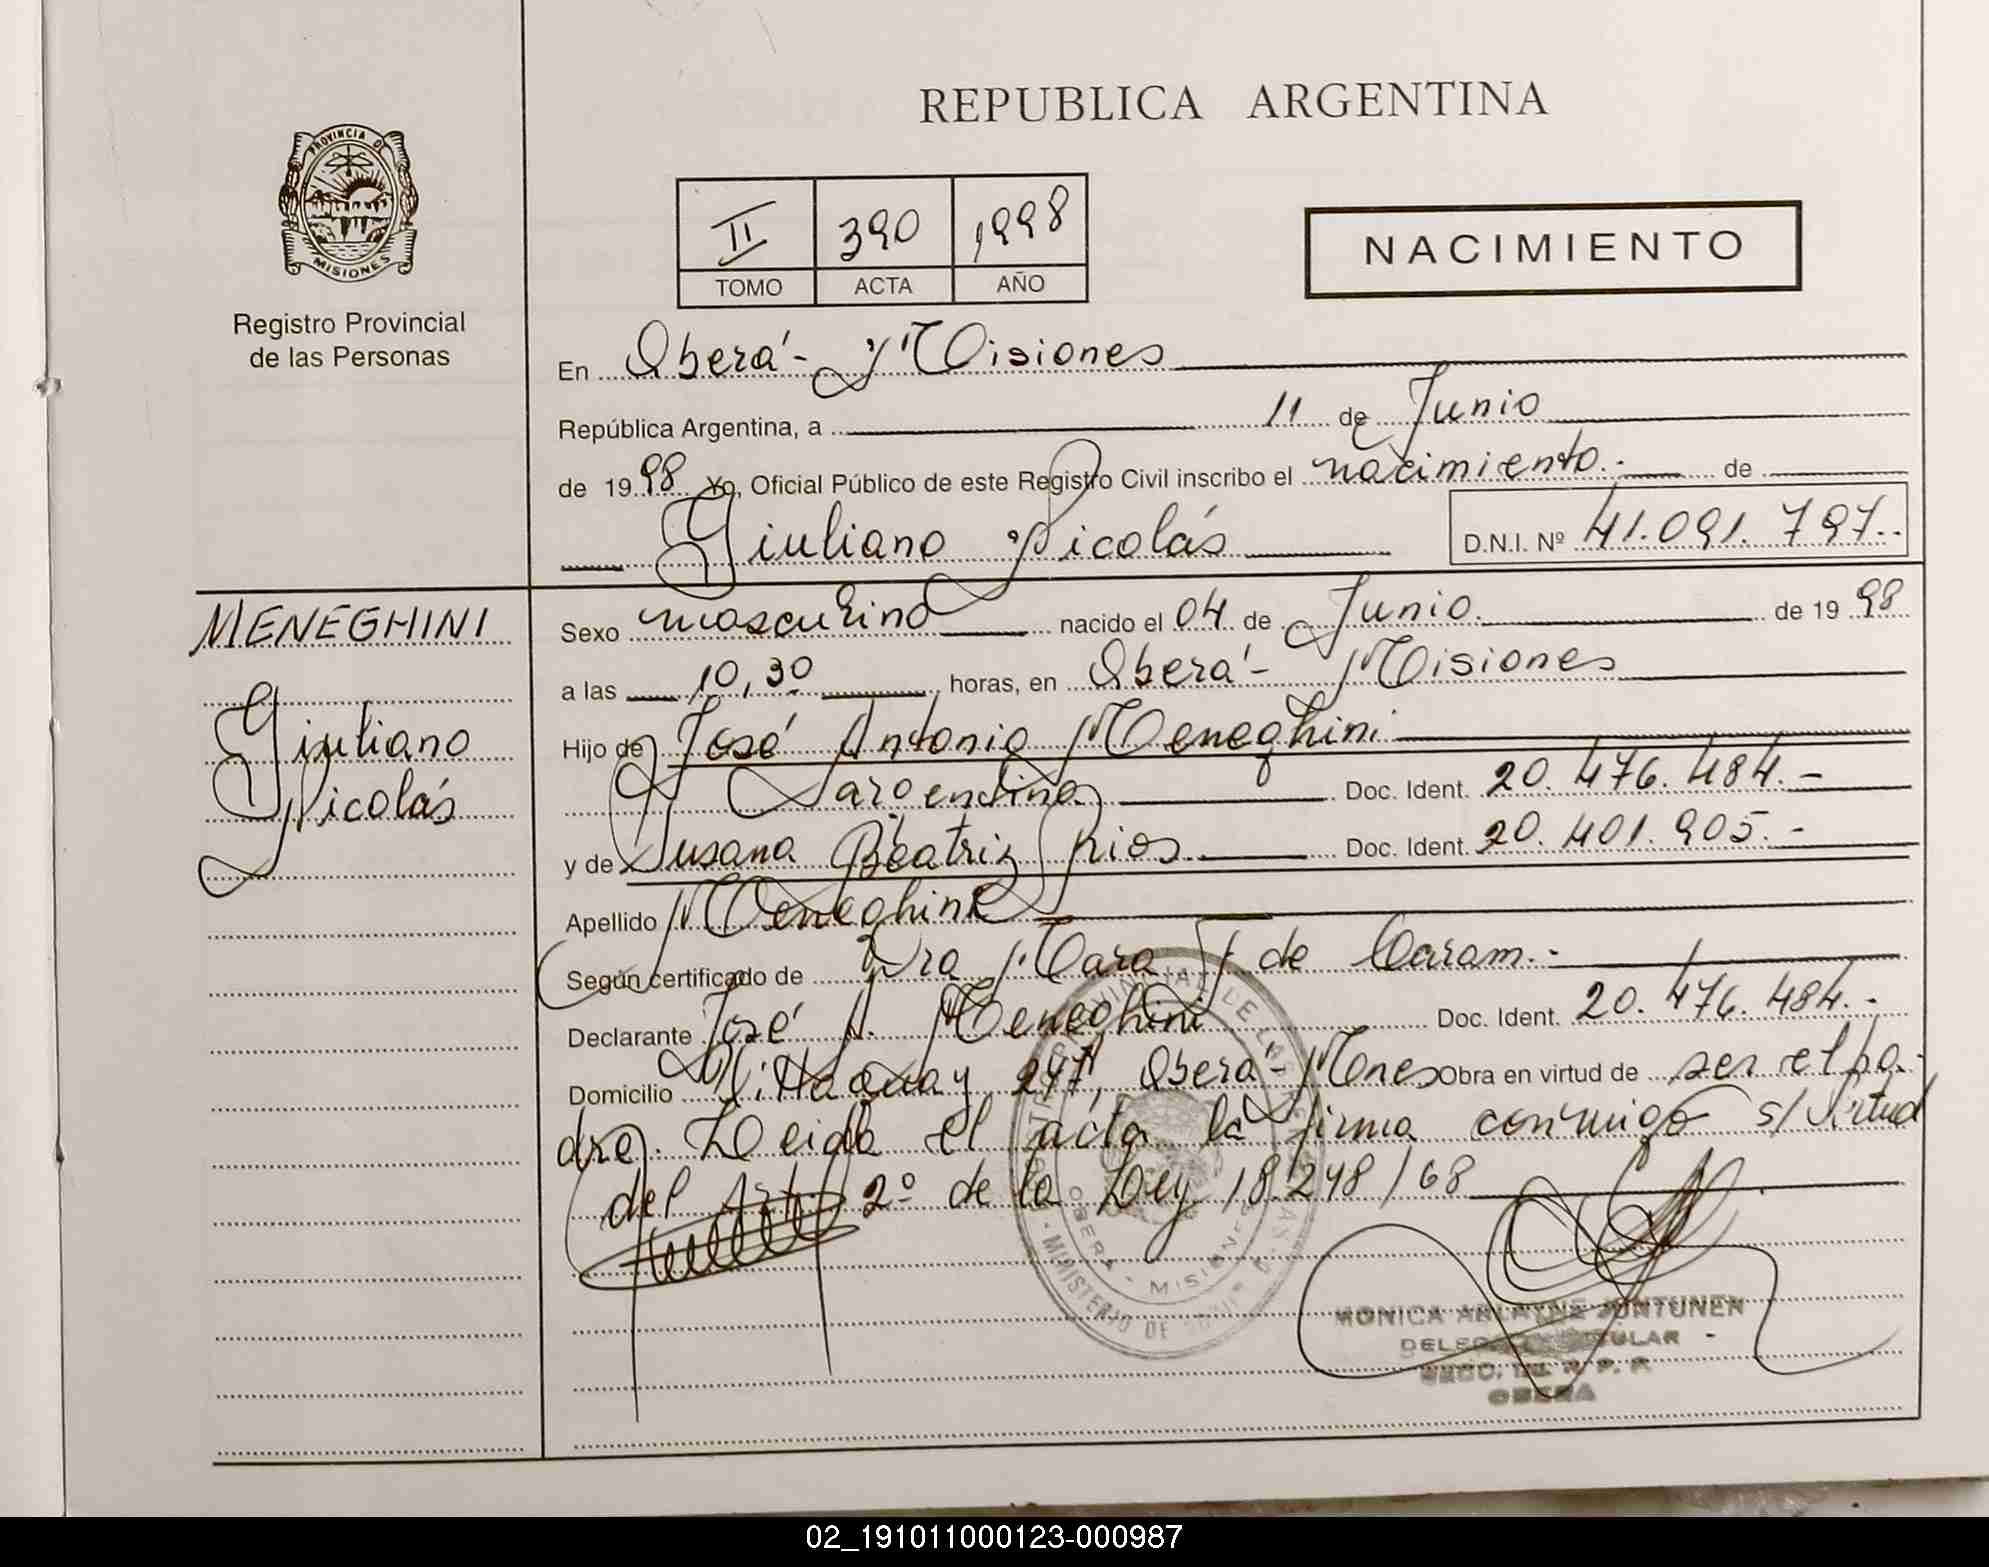 REPUBLICA ARGENTINA
PROVINCIA DE
MISIONES
Registro Provincial
de las Personas
II 390 1998
TOMO ACTA AÑO
NACIMIENTO
En Oberá - Misiones
República Argentina, a 11 de Junio
de 1998 Yo, Oficial Público de este Registro Civil inscribo el nacimiento.- de
Giuliano Nicolás D.N.I. Nº 41.091.797.-
MENEGHINI
Giuliano
Nicolás
Sexo masculino nacido el 04 de Junio de 1998
a las 10,30 horas, en Oberá - Misiones
Hijo de José Antonio Meneghini
argentino Doc. Ident. 20.476.484.-
y de Susana Beatriz Rios Doc. Ident. 20.401.905.-
Apellido Meneghini
Según certificado de Dra Mara de Caram.-
Declarante José A. Meneghini Doc. Ident. 20.476.484.-
Domicilio 247, Oberá - Mnes Obra en virtud de ser el pa-
dre. Leida el acta la firma conmigo s/ virtud
del Art. 2º de la Ley 18.248/68
OBERA - MISIONES
MINISTERIO DE
MONICA JUNTUNEN
OBERA
02_191011000123-000987